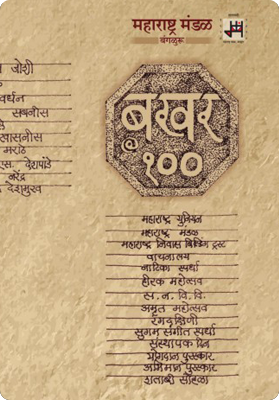 महाराष्ट्र मंडळ
बंगळुरू
जोशी
वर्धन
सबनीस
खासनीस
मराठे
एस. देशपांडे
नरेंद्र
देशमुख
बखर
@
१००
महाराष्ट्र युनियन
महाराष्ट्र मंडळ
महाराष्ट्र निवास बिल्डिंग ट्रस्ट
वाचनालय
नाटिका स्पर्धा
हीरक महोत्सव
स. न. वि. वि.
अमृत महोत्सव
रंगदक्षिणी
सुगम संगीत स्पर्धा
संस्थापक दिन
योगदान पुरस्कार
अभिमान पुरस्कार
शताब्दी सोहळा